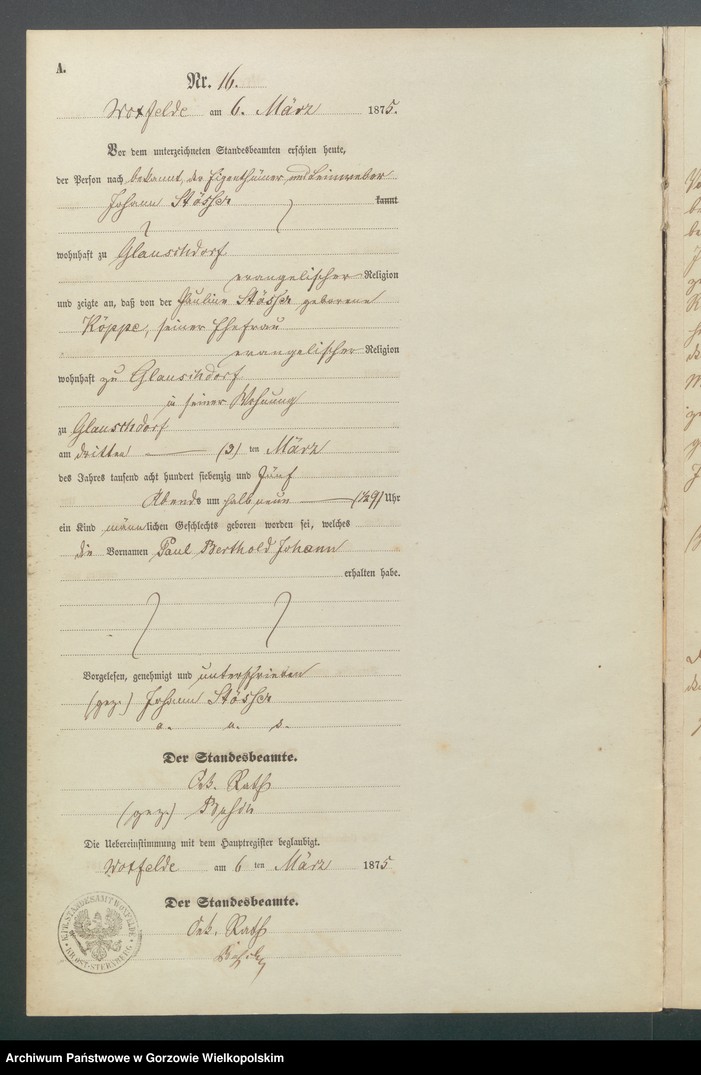 A.
Nr. 16.
Wotfelde am 6. März 1875.
Vor dem unterzeichneten Standesbeamten erschien heute,
der Person nach bekannt, der Eigenthümer und Leinweber
Johann Stösser kannt
wohnhaft zu Glauschdorf
evangelischer Religion
und zeigte an, daß von der Pauline Stösser geborene
Köppe, seiner Ehefrau
evangelischer Religion
wohnhaft zu Glauschdorf
in seiner Wohnung
zu Glauschdorf
am dritten (3) ten März
des Jahres tausend acht hundert siebenzig und fünf
Abends um halb neun (½9) Uhr
ein Kind männlichen Geschlechts geboren worden sei, welches
die Vornamen Paul Berthold Johann
erhalten habe.
Vorgelesen, genehmigt und unterschrieben
(gez.) Johann Stösser
a. u. s.
Der Standesbeamte.
Oek. Rath
(gez.)
Die Uebereinstimmung mit dem Hauptregister beglaubigt.
Wotfelde am 6 ten März 1875
Der Standesbeamte.
Oek. Rath
STANDESAMT WOTFELDE
KR. OST-STERNBERG
Archiwum Państwowe w Gorzowie Wielkopolskim